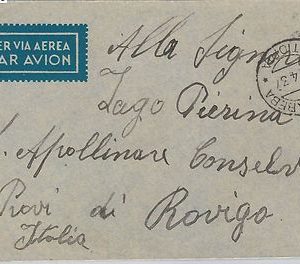 ER VIA AEREA
AR AVION
Alla Signor
Zago Pierina
S. Apollinare Conselv
Provi di Rovigo
Italia